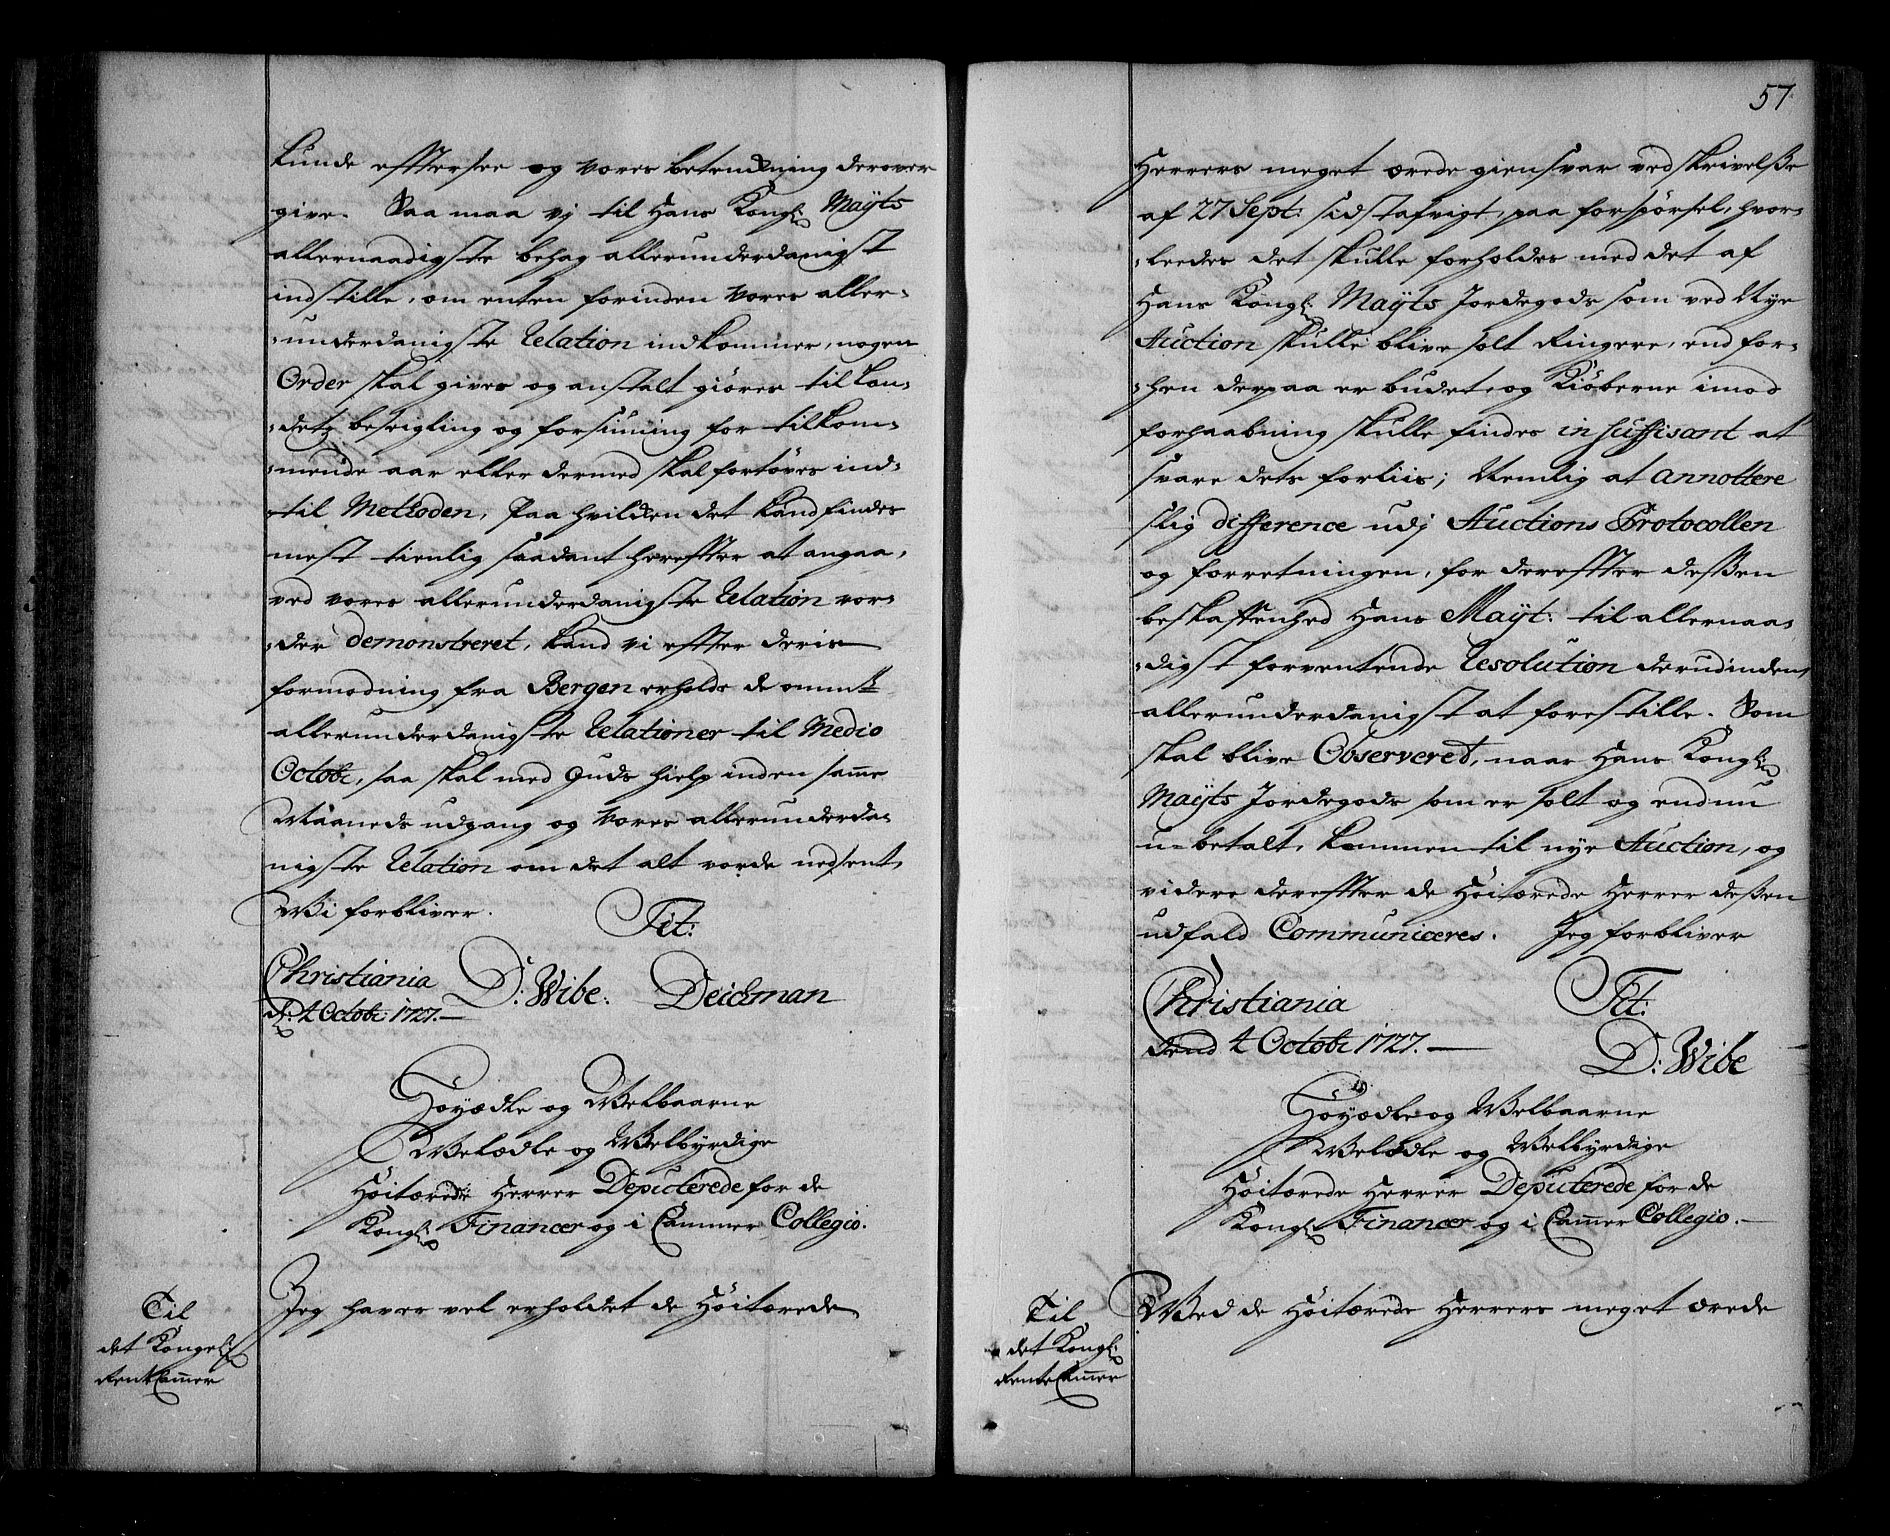 kunde efftersee og vores betenckning derover
give. Saa maa vj til Hans Kongl: Maÿts
allernaadigste behag allerunderdanigst
indstille, om enten forinden Vores aller-
-underdanigste Relation indkommer, nogen
Order skal gives og anstalt giøres til Lan-
-detz beseigling og forsiuning for tilkom-
-mende aar eller dermed skal fortøves ind-
-til Metoden, Paa hvilcken det kand findes
mest tienlig saadant hereffter at angaa,
ved vores allerunderdanigste Relation vor-
-der demonstreret, kand vi effter deris
formodning fra Bergen erholde de ommt:
allerunderdanigste Relationer til Medio
Octobr, saa skal med Guds hielp inden samme
Maaneds udgang og Vores allerunderda-
nigste Relation om det alt vorde nedsent,
Wi forbliver.
Tit:
Christiania D: Wibe: Deichman
d: 4 Octobr: 1727.
Høyædle og Welbaarne
Welædle og Welbyrdige
Høitærede Herrer Deputerede for de
Kongl: Financer og i Cammer Collegio.
Til
det Kongel:
Rentkammer
Jeg haver vel erholdet de Høitærede
57
Herrers meget ærede giensvar ved skrivelße
af 27 Sept: sidstafvigt, paa forspørsel, hvor-
-leedes det skulle forholdes med det af
Hans Kongl: Maÿts Jordegods som ved Nye
Auction skulle blive solt Ringere, end for-
-hen derpaa er budet, og Kiøberne imod
forhaabning skulle findes insuffisant at
svare dets forliis; Nemlig at annottere
slig difference udj Auctions Protocollen
og forretningen, for dereffter deßen
beskaffenhed Hans Maÿt: til allernaa-
-digst forventende Resolution derudinden
allerunderdanigst at forestille. Som
skal blive Observeret, naar Hans Kongl:
Maÿts Jordegods som er solt og endnu
u-betalt, kommen til nye Auction, og
videre dereffter de Høitærede Herrer deßen
udfald Communiceres. Jeg forbliver
Tit:
Christiania
dend 4 Octobr 1727.
D: Wibe
Høyædle og Welbaarne
Welædle og Welbyrdige
Høitærede Herrer Deputerede for de
Kongl: Financer og i Cammer Collegio.
Til
det Kongl:
Rentekammer
Wed de Høitærede Herrers meget ærede